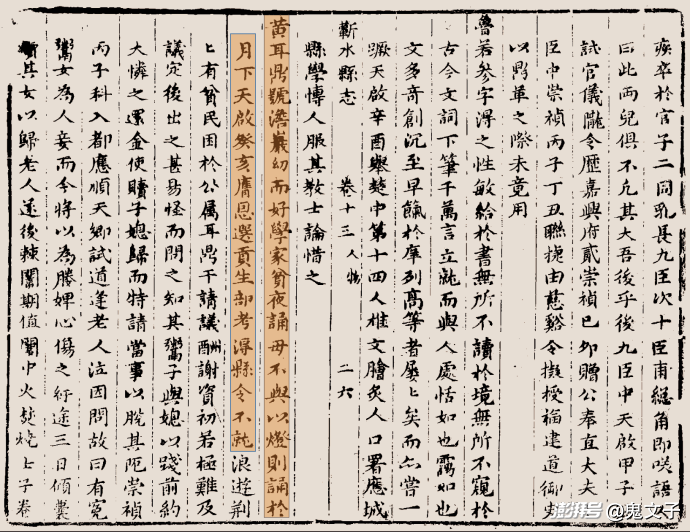 疾卒於官子二同乳長九臣次十臣甫總角即咲語人
曰此兩兒俱不凡其大吾後乎後九臣中天啟甲子
試官儀隴令歷嘉興府貳崇禎己卯贈公奉直大夫
臣中崇禎丙子丁丑聯捷由慈谿令擬授福建道御史
以鼎革之際未竟用
魯若參字淂之性敏給於書無所不讀於境無所不窺於
古今文詞下筆千萬言立就而與人處恬如也靄如也
文多奇創沉至早餼於庠列高等者屢上矣而亦嘗一
蹶天啟辛酉舉楚中第十四人雄文膾炙人口署應城
縣學愽人服其教士論惜之
蘄水縣志 卷十三 人物 二六
黃耳鼎號澹巖幼而好學家貧夜誦母不與以燈則誦於
月下天啟癸亥膺恩選貢生部考淂縣令不就浪遊荆
上有貧民困於公属耳鼎干請議酬謝資初若極難及
議定後出之甚易怪而問之知其鬻子與媳以踐前約
大憐之還金使贖子媳歸而特請當事以脫其阨崇禎
丙子科入都應順天鄉試道逢老人泣因問故曰有冤
鬻女為人妾而今將以為媵婢心傷之紆途三日傾囊
其女以歸老人遂後棘闈期值闈中火焚燒士子卷
澎湃号@鬼文子